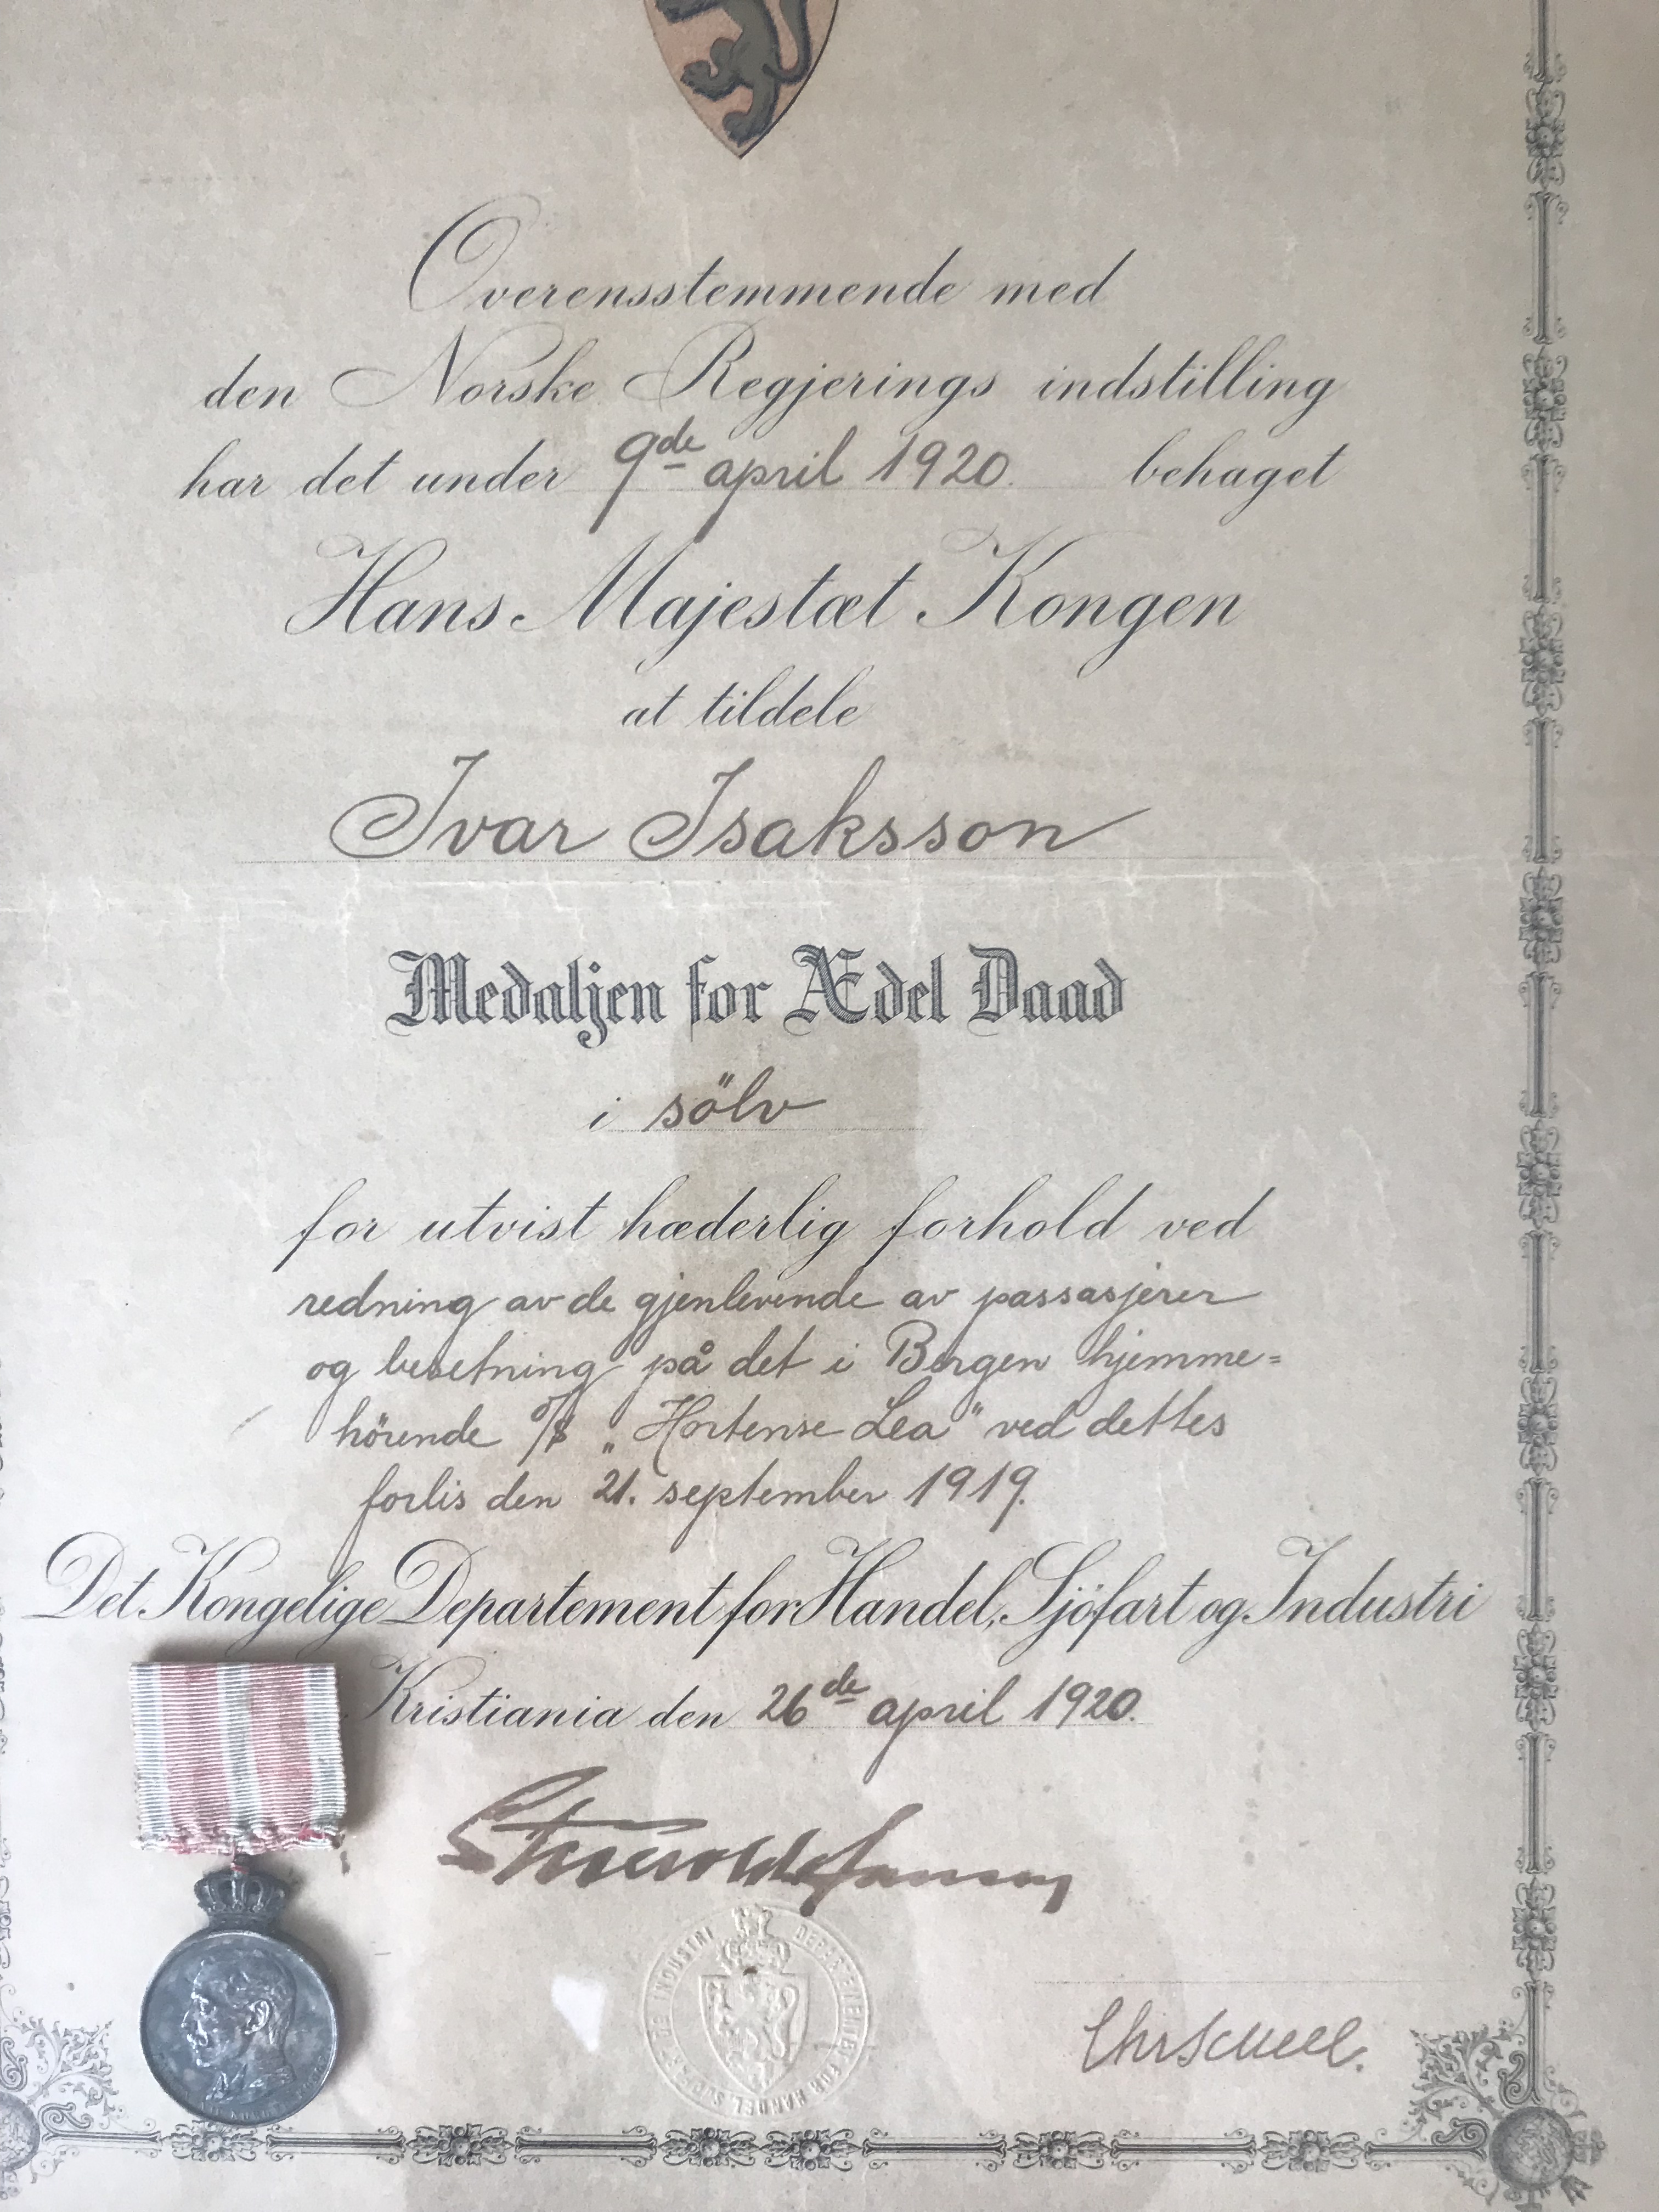 Overensstemmende med
den Norske Regjerings indstilling
har det under 9de april 1920. behaget
Hans Majestæt Kongen
at tildele
Ivar Isaksson
Medaljen for Ædel Daad
i sölv
for utvist hæderlig forhold ved
redning av de gjenlevende av passasjerer
og besetning på det i Bergen hjemme=
hörende "Hortense Lea" ved dettes
forlis den 21. september 1919.
Det Kongelige Departement for Handel, Sjöfart og Industri
Kristiania den 26de april 1920.
DEPARTEMENTET FOR HANDEL SJØFART OG INDUSTRI